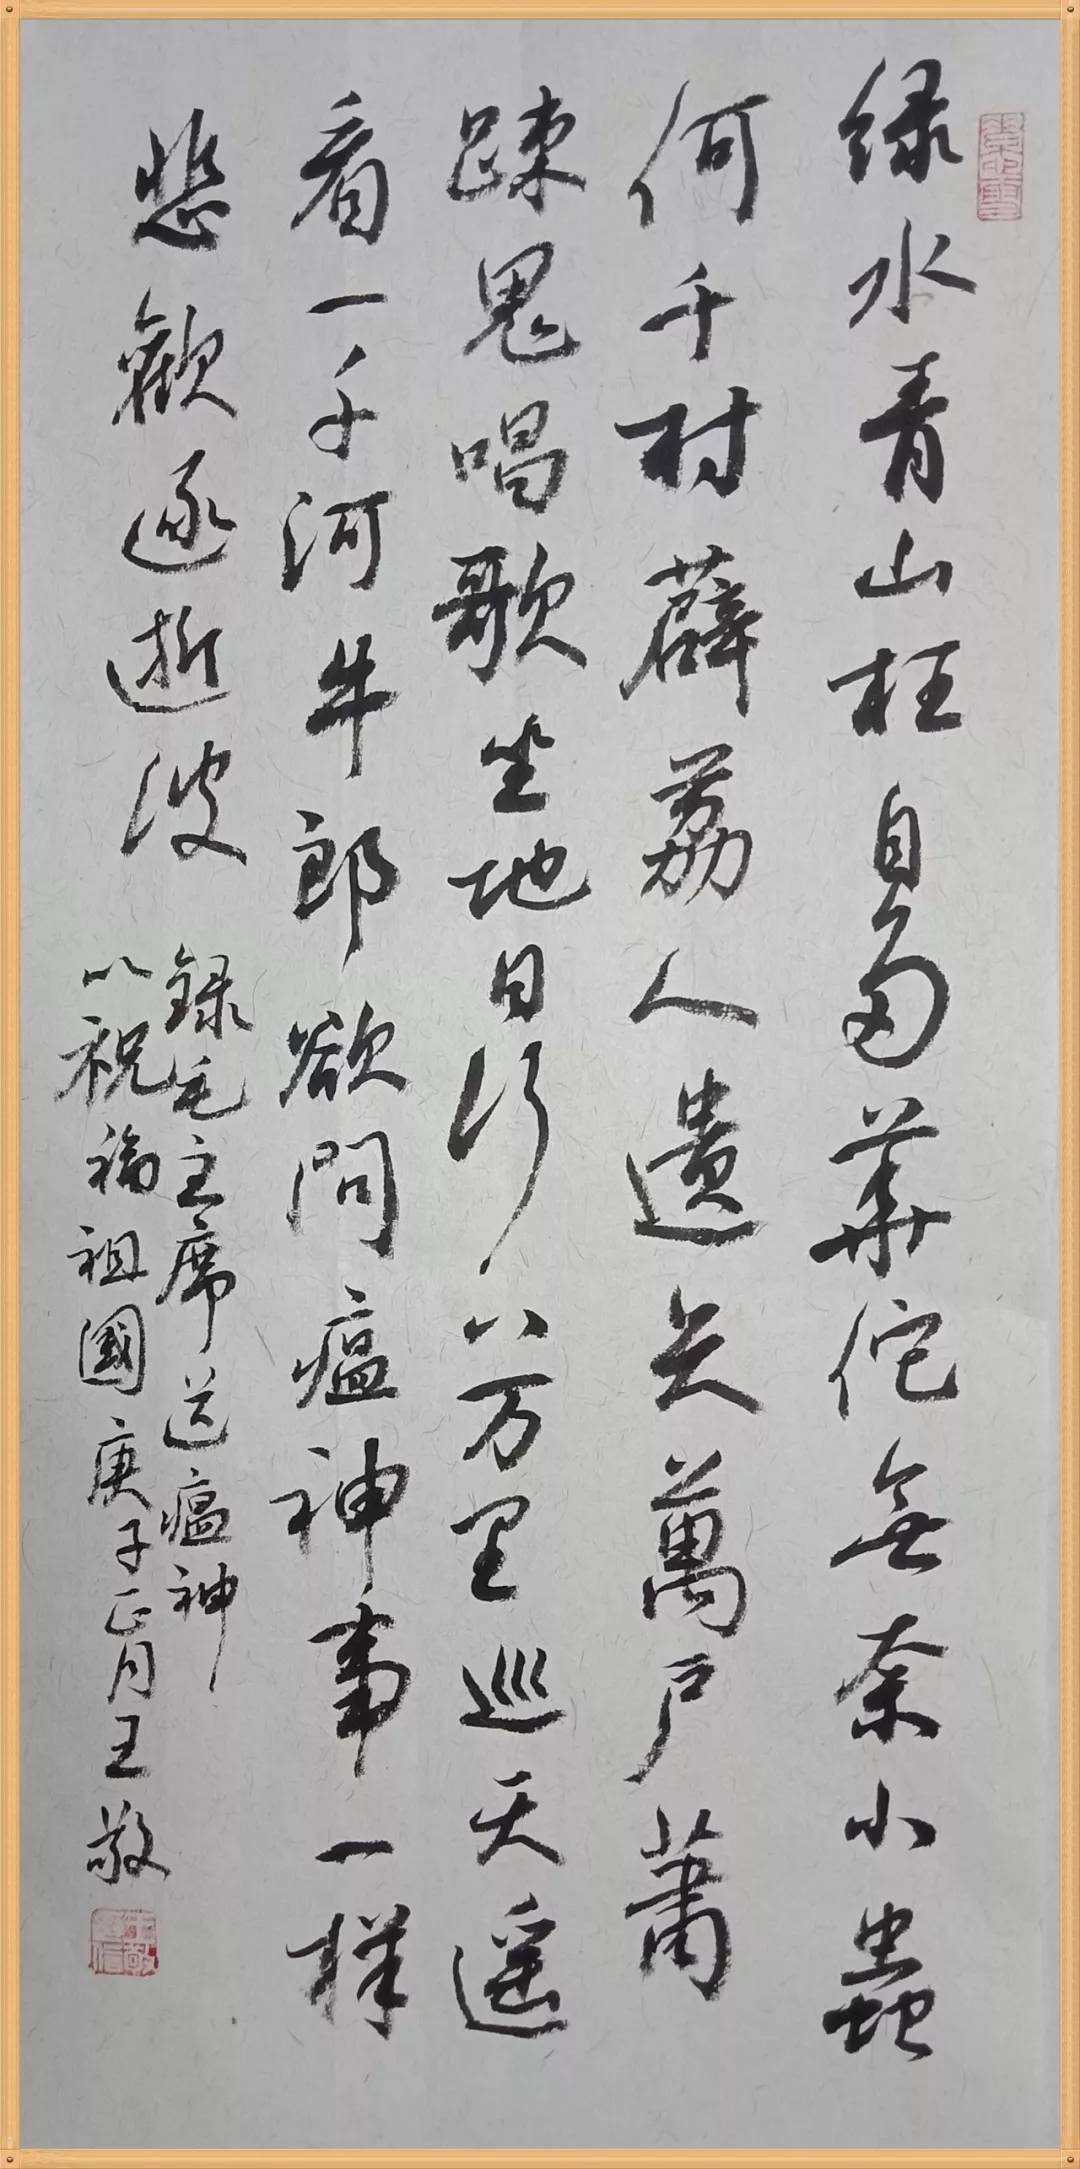 绿水青山枉自多華佗無奈小蟲
何千村薜荔人遺矢萬戶蕭
疎鬼唱歌坐地日行八万里巡天遥
看一千河牛郎欲問瘟神事一様
悲歡逐逝波
録毛主席送瘟神
以祝福祖國庚子正月王敬